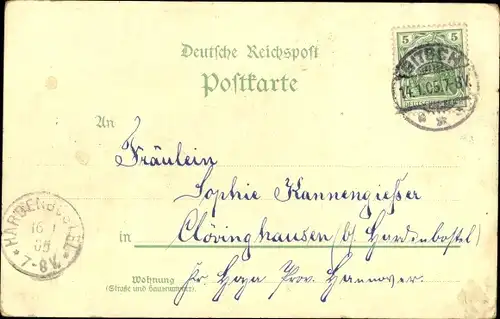 5 5
Deutsche Reichspost
Postkarte
14.1.05.7-8V.
An
Fräulein
Sophie Kannengießer
in Clövinghausen (b/ Hardenbostel)
Wohnung
(Straße und Hausnummer)
Kr. Hoya Prov. Hannover.
HARDENBOSTEL
16 1
05
7-8V.